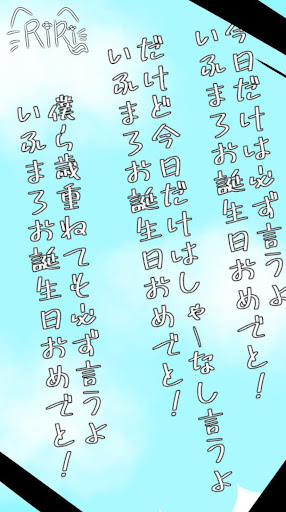 RiRi
今日だけは必ず言うよ
いふまろお誕生日おめでと！
だけど今日だけはしゃーなし言うよ
いふまろお誕生日おめでと！
僕ら歳重ねても必ず言うよ
いふまろお誕生日おめでと！